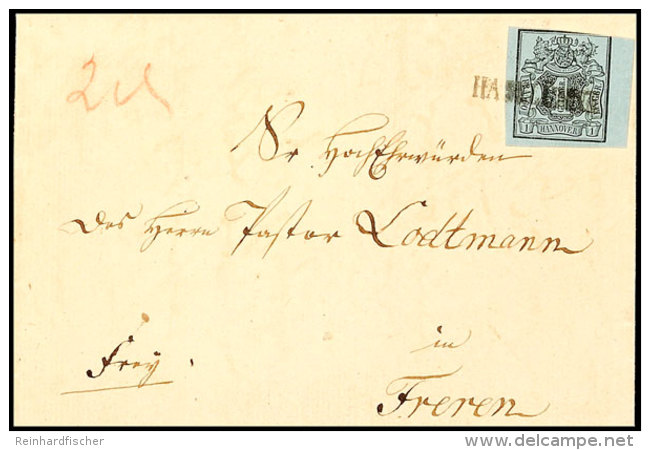 2
HA
1 HANNOVER 1
Sr HochEhrwürden
des Herrn Pastor Lodtmann
in
Frey.
Freren
Reinhardfischer
delcampe.net